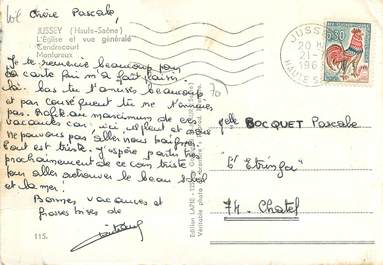 Chère Pascale,
JUSSEY (Haute-Saône)
L'Église et vue générale
Cendrecourt
Montureux
Je te remercie beaucoup pour
ta carte qui m'a fait plaisir.
là bas tu t'amuses beaucoup
et par conséquent tu ne t'ennuies
pas. Profite au maximum de ces
vacances car ici il pleut et nous
ne pouvons pas aller nous baigner.
J'espère partir très
prochainement de ce coin triste
pour aller retrouver le beau soleil
et la mer!
Bonnes vacances et
grosses bises de
115.
Edition LAPIE
Véritable photo
JUSSEY
20 H
21-
196
HAUTE S
0,30
Melle BOCQUET Pascale
74. Chatel
70